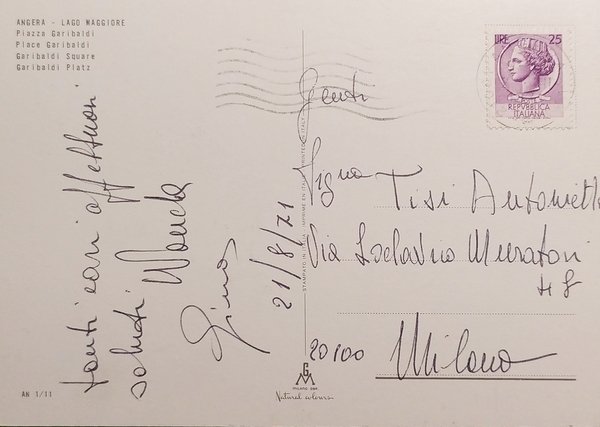 ANGERA - LAGO MAGGIORE
Piazza Garibaldi
Place Garibaldi
Garibaldi Square
Garibaldi Platz
tanti cari affettuosi
saluti Wanda
Gino
21/8/71
AN 1/11
STAMPATO IN ITALIA - IMPRIMÉ EN ITALIE - PRINTED IN ITALY
LIRE 25
REPVBBLICA
ITALIANA
Gent.
Sig.na Tisi Antoniett
Via Lodovico Muratori
48
20100 Milano
GM
MILANO
Natural colours